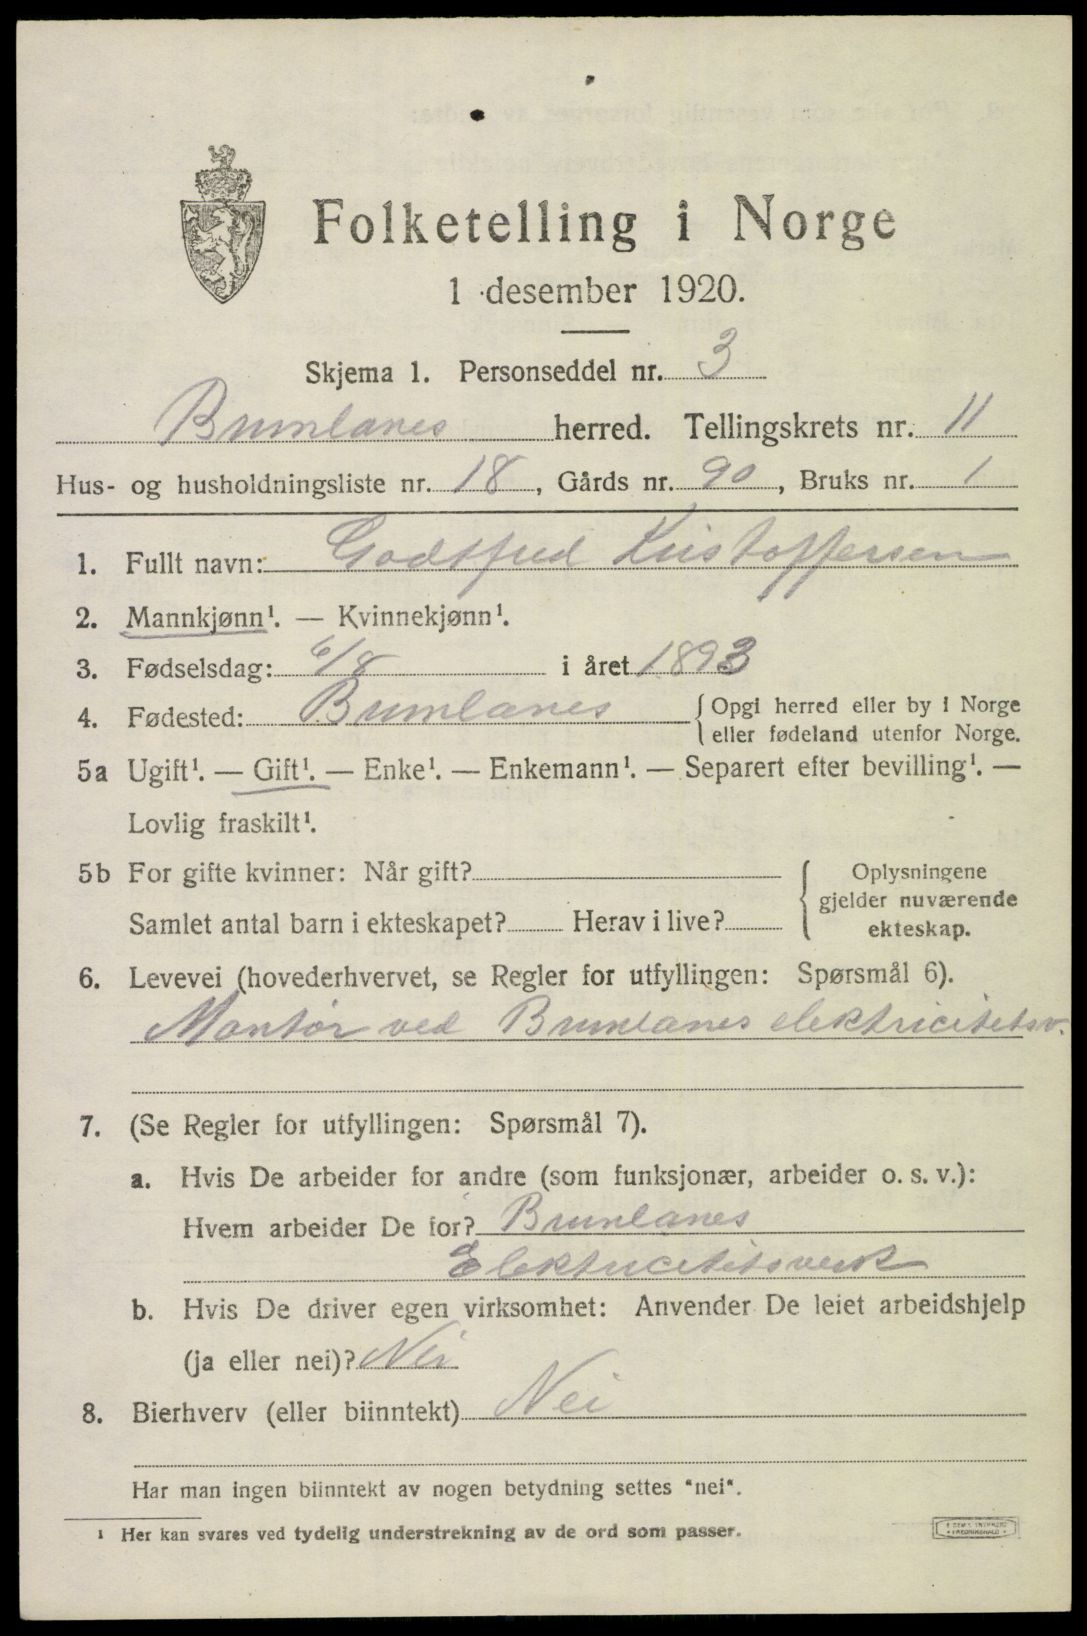 Folketelling i Norge
1 desember 1920.
Skjema 1. Personseddel nr. 3
Brunlanes herred. Tellingskrets nr. 11
Hus- og husholdningsliste nr. 18, Gårds nr. 90, Bruks nr. 1
1. Fullt navn: Godtfred Kristoffersen
2. Mannkjønn¹. — Kvinnekjønn¹.
3. Fødselsdag: 6/8 i året 1893
4. Fødested: Brunlanes {Opgi herred eller by i Norge
eller fødeland utenfor Norge.
5a Ugift¹. — Gift¹. — Enke¹. — Enkemann¹. — Separert efter bevilling¹. —
Lovlig fraskilt¹.
5b For gifte kvinner: Når gift?
Samlet antal barn i ekteskapet? Herav i live?
Oplysningene
gjelder nuværende
ekteskap.
6. Levevei (hovederhvervet, se Regler for utfyllingen: Spørsmål 6).
Montør ved Brunlanes elektricitetsv.
7. (Se Regler for utfyllingen: Spørsmål 7).
a. Hvis De arbeider for andre (som funksjonær, arbeider o. s. v.):
Hvem arbeider De for? Brunlanes
Elektricitetsverk
b. Hvis De driver egen virksomhet: Anvender De leiet arbeidshjelp
(ja eller nei)? Nei
8. Bierhverv (eller biinntekt) Nei
Har man ingen biinntekt av nogen betydning settes "nei".
¹ Her kan svares ved tydelig understrekning av de ord som passer.